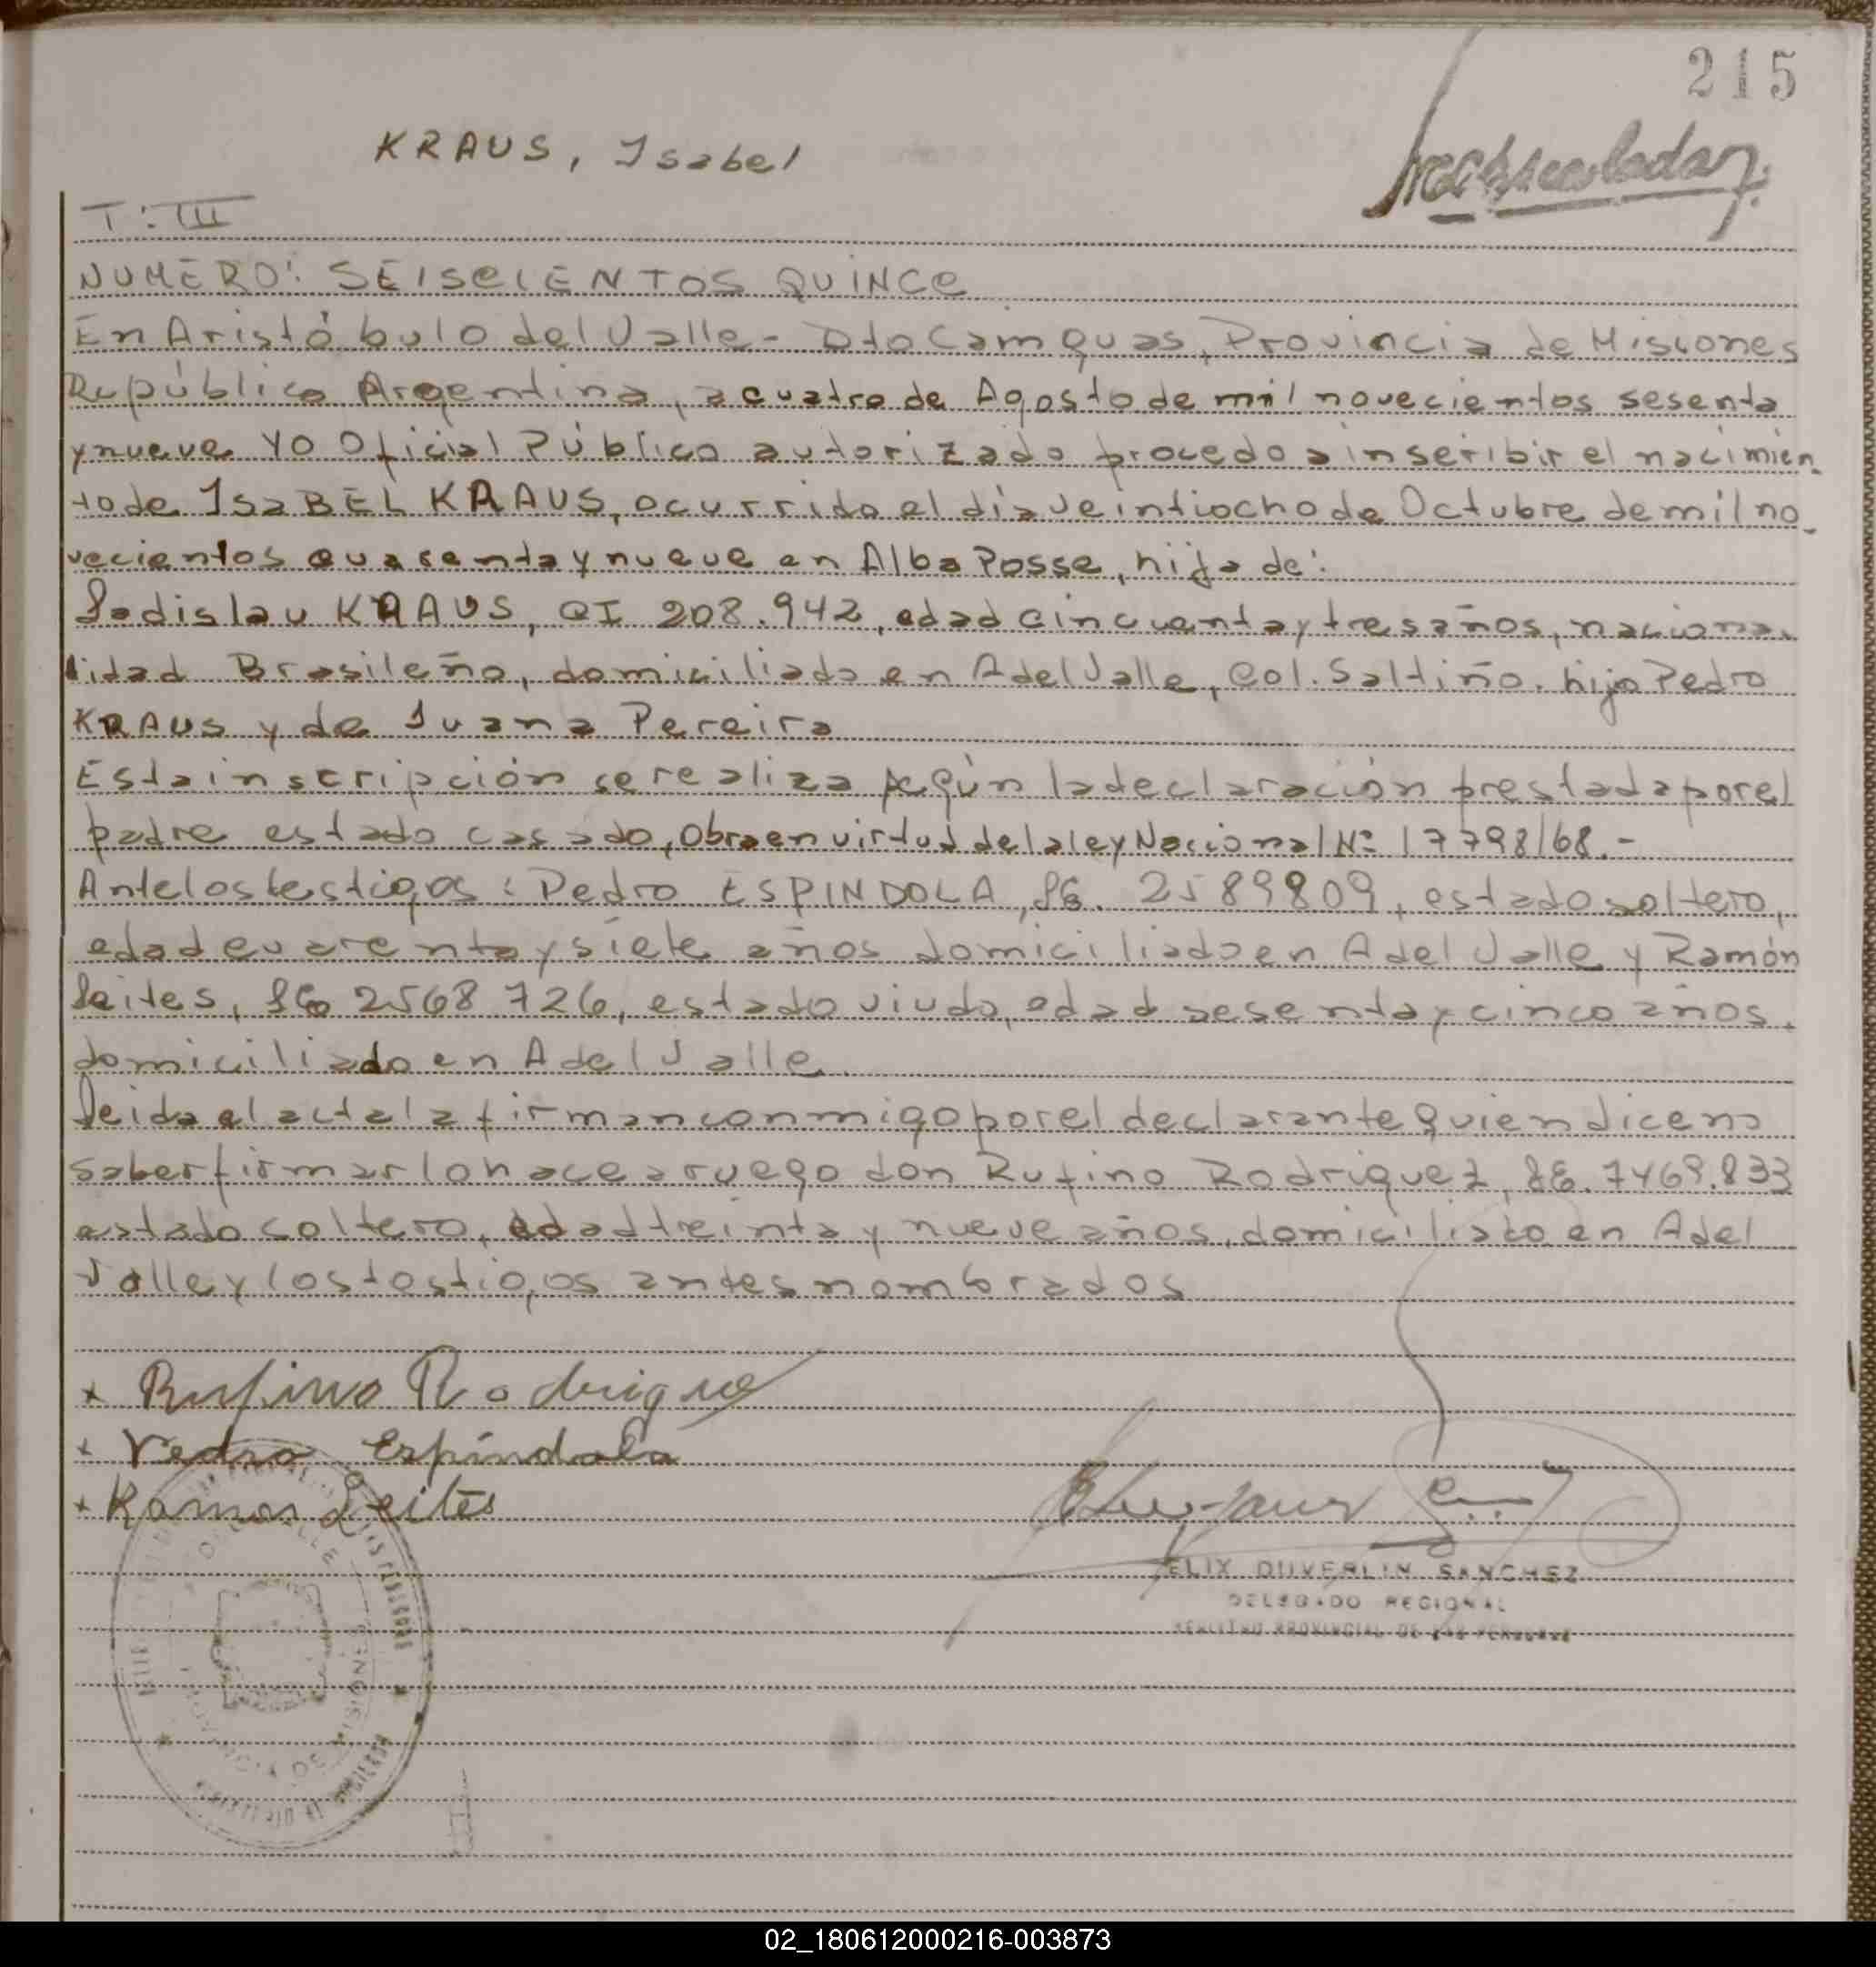 215
KRAUS, Isabel
T: III
NUMERO: SEISCIENTOS QUINCE
En Aristóbulo del Valle - Dto Cainguas, Provincia de Misiones
República Argentina, a cuatro de Agosto de mil novecientos sesenta
y nueve YO Oficial Público autorizado procedo a inscribir el nacimien
to de ISaBEL KRAUS, ocurrido el día veintiocho de Octubre de mil no-
vecientos cuarenta y nueve en Alba Posse, hija de:
Ladislau KRAUS, CI 208.942, edad cincuenta y tres años, naciona-
lidad Brasileño, domiciliado en A del Valle, Col. Saltiño. hijo Pedro
KRAUS y de Juana Pereira
Esta inscripción se realiza según la declaración prestada por el
padre estado casado, Obra en virtud de la ley Nacional Nº 17798/68.-
Ante los testigos: Pedro ESPINDOLA, LE. 2589809, estado soltero,
edad cuarenta y siete años domiciliado en A del Valle y Ramón
Leites, LE 2568726, estado viudo, edad sesenta y cinco años.
domiciliado en A del Valle
Leida el acta la firman conmigo por el declarante quien dice no
saber firmar lo hace a ruego don Rufino Rodriguez, LE. 7469.833
estado soltero, edad treinta y nueve años, domiciliado en A del
Valle y los testigos antes nombrados
x Rufino Rodrigue
x Pedro Espíndola
x Ramon Leites
FELIX DUVERLIN SANCHEZ
DELEGADO REGIONAL
REGISTRO PROVINCIAL DE LAS PERSONAS
PROVINCIA DE MISIONES
02_180612000216-003873